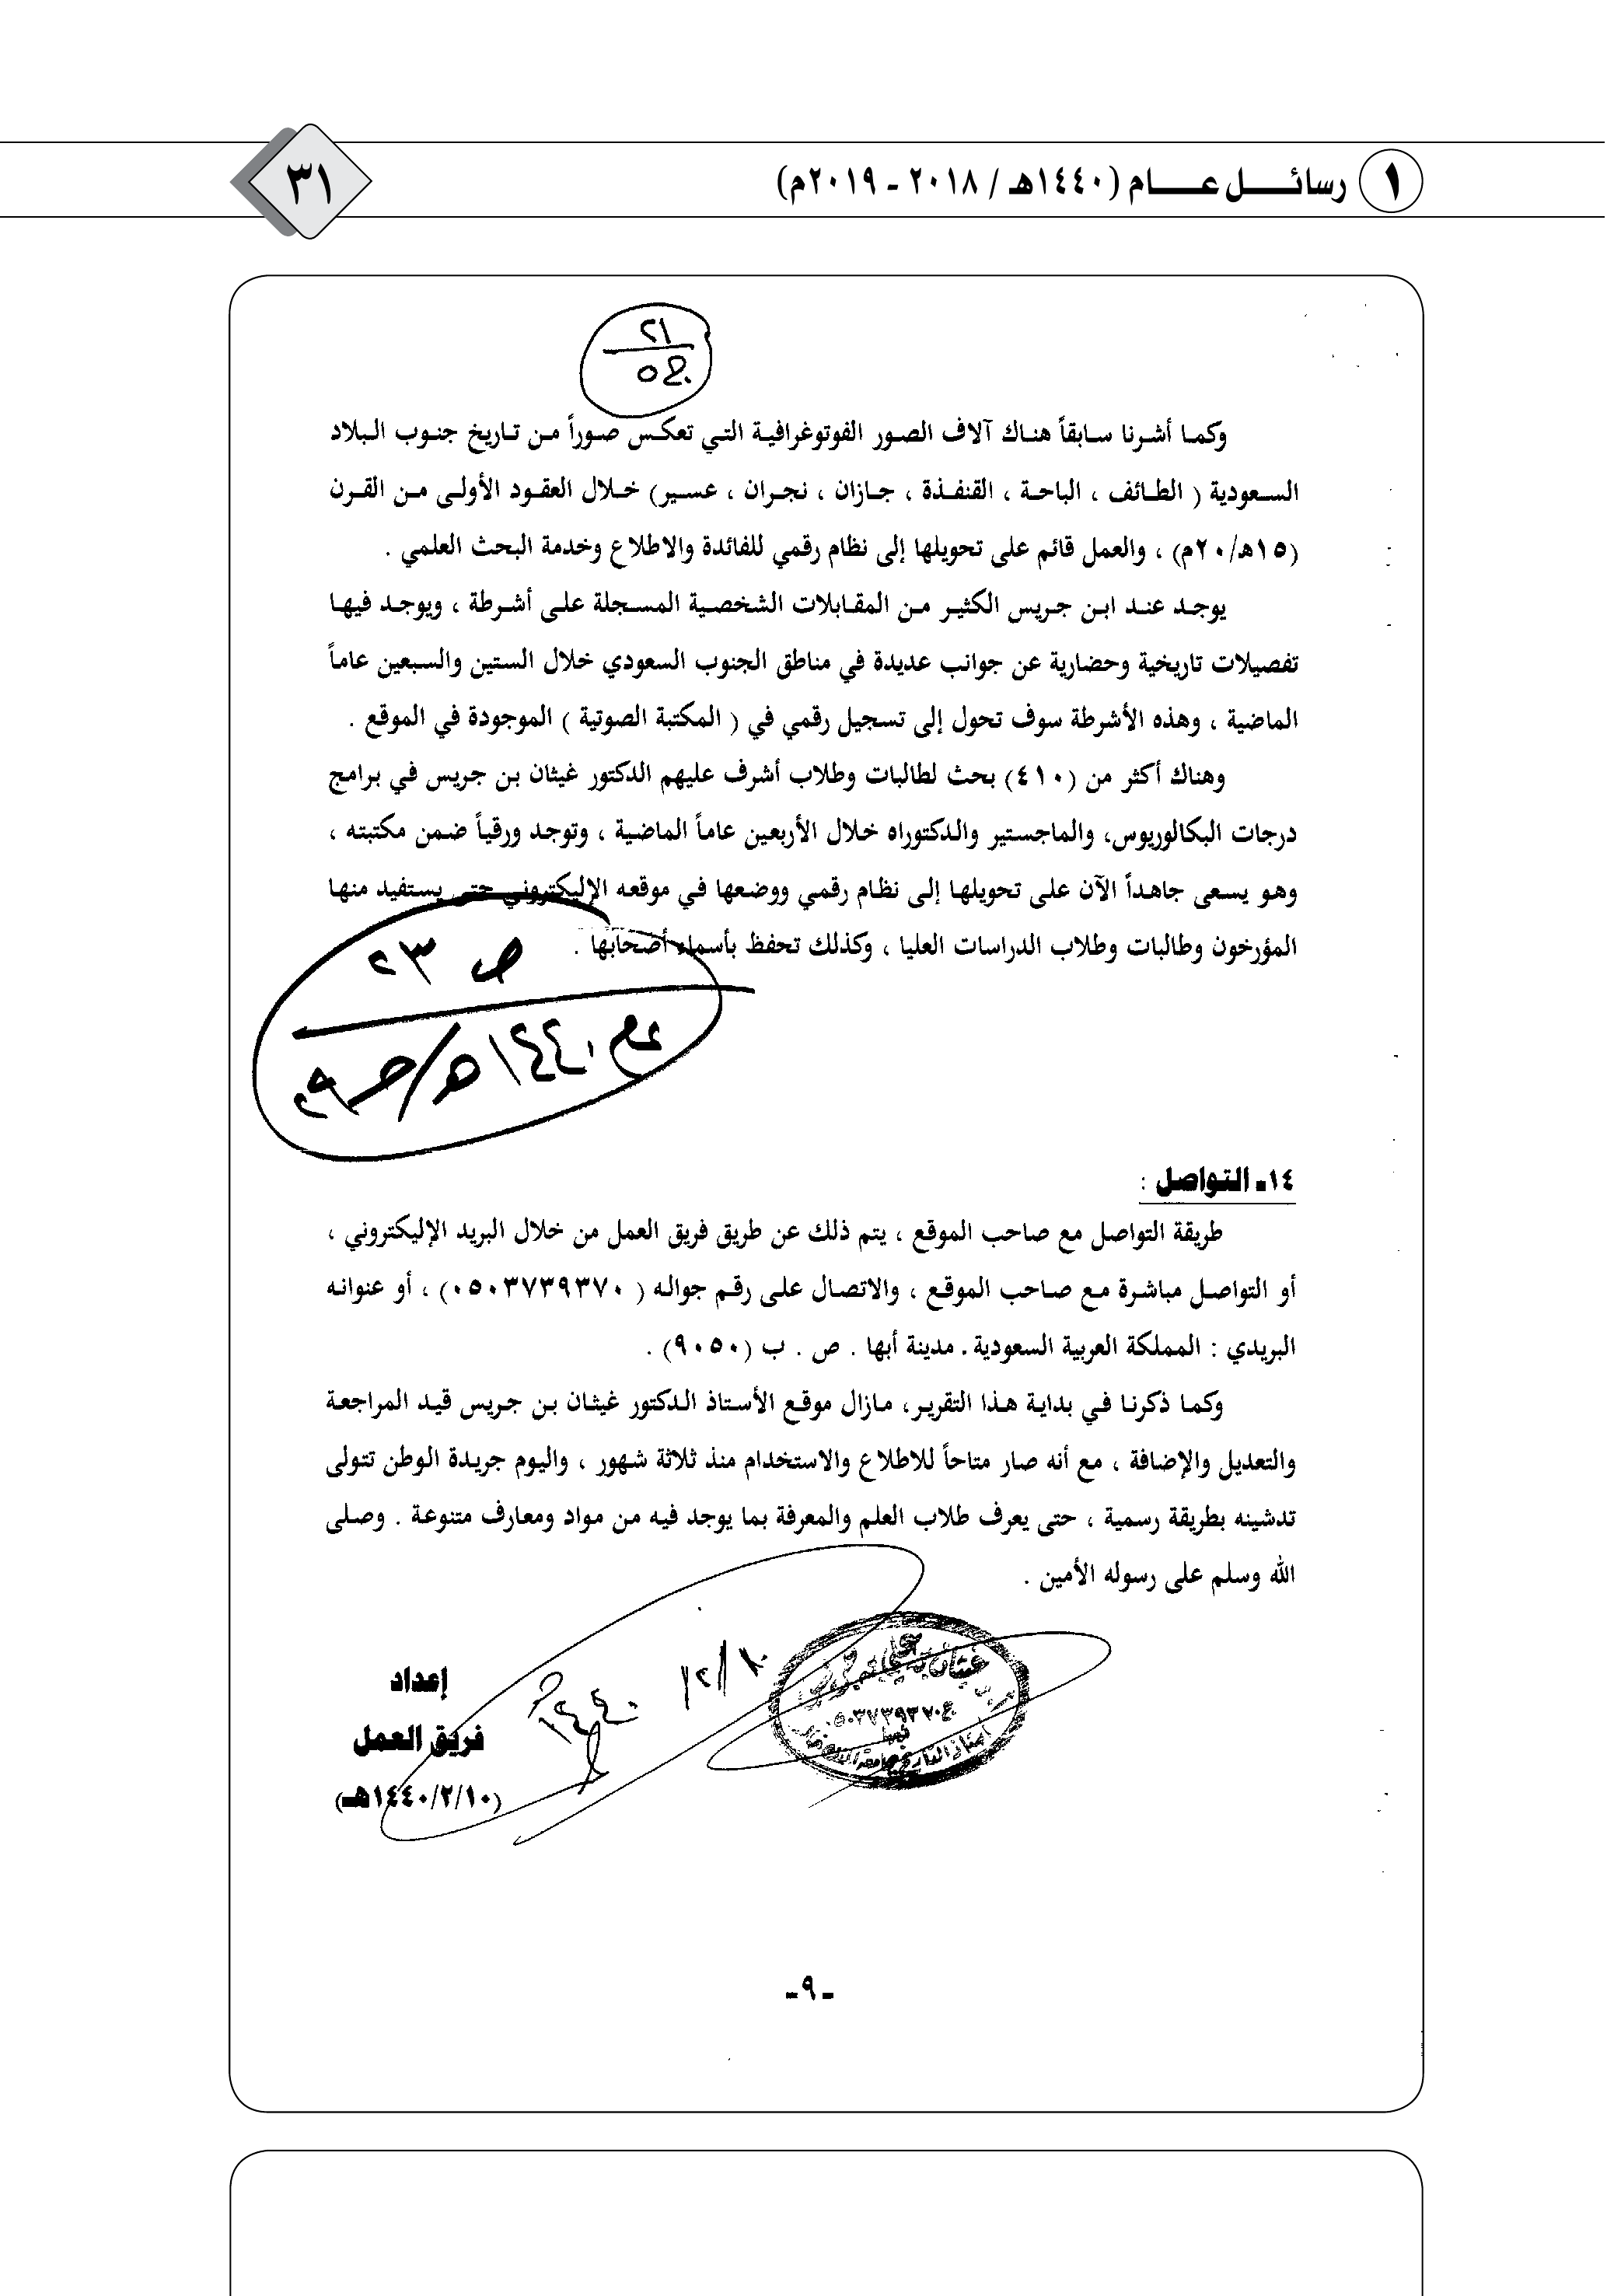 ١ رسائـــل عـــــام (١٤٤٠هـ / ٢٠١٨ - ٢٠١٩م)
٣١
٢١
وكمـا أشـرنا سـابقاً هنـاك آلاف الصـور الفوتوغرافيـة التـي تعكـس صـوراً مـن تـاريخ جنـوب الـبلاد
السـعودية ( الطـائف ، الباحـة ، القنفـذة ، جـازان ، نجـران ، عسـير) خـلال العقـود الأولـى مـن القـرن
(١٥هـ/٢٠م) ، والعمل قائم على تحويلها إلى نظام رقمي للفائدة والاطلاع وخدمة البحث العلمي .
يوجـد عنـد ابـن جـريس الكثيـر مـن المقـابلات الشخصـية المسـجلة علـى أشـرطة ، ويوجـد فيهـا
تفصيلات تاريخية وحضارية عن جوانب عديدة في مناطق الجنوب السعودي خلال الستين والسبعين عاماً
الماضية ، وهذه الأشرطة سوف تحول إلى تسجيل رقمي في ( المكتبة الصوتية ) الموجودة في الموقع .
وهناك أكثر من (٤١٠) بحث لطالبات وطلاب أشرف عليهم الدكتور غيثان بن جريس في برامج
درجات البكالوريوس، والماجستير والدكتوراه خلال الأربعين عاماً الماضية ، وتوجد ورقياً ضمن مكتبته ،
وهو يسعى جاهداً الآن على تحويلها إلى نظام رقمي ووضعها في موقعه الإليكتروني حتى يستفيد منها
المؤرخون وطالبات وطلاب الدراسات العليا ، وكذلك تحفظ بأسماء أصحابها .
ص ٢٣
١٤٤٠هـ/
١٤ـ التواصل :
طريقة التواصل مع صاحب الموقع ، يتم ذلك عن طريق فريق العمل من خلال البريد الإليكتروني ،
أو التواصـل مباشـرة مـع صـاحب الموقـع ، والاتصـال علـى رقـم جوالـه ( ٠٥٠٣٧٣٩٣٧٠) ، أو عنوانـه
البريدي : المملكة العربية السعودية . مدينة أبها . ص . ب (٩٠٥٠) .
وكمـا ذكرنـا فـي بدايـة هـذا التقريـر، مـازال موقـع الأسـتاذ الـدكتور غيثـان بـن جـريس قيـد المراجعـة
والتعديل والإضافة ، مع أنه صار متاحاً للاطلاع والاستخدام منذ ثلاثة شهور ، واليوم جريدة الوطن تتولى
تدشينه بطريقة رسمية ، حتى يعرف طلاب العلم والمعرفة بما يوجد فيه من مواد ومعارف متنوعة . وصلى
الله وسلم على رسوله الأمين .
إعداد
فريق العمل
(١٤٤٠/٢/١٠هـ)
٠٥٠٣٧٣٩٣٧٠
أبها
ـ ٩ ـ